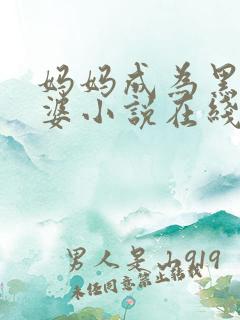 妈妈成为黑
婆小说在线
男人是山919
未经同意禁止转载